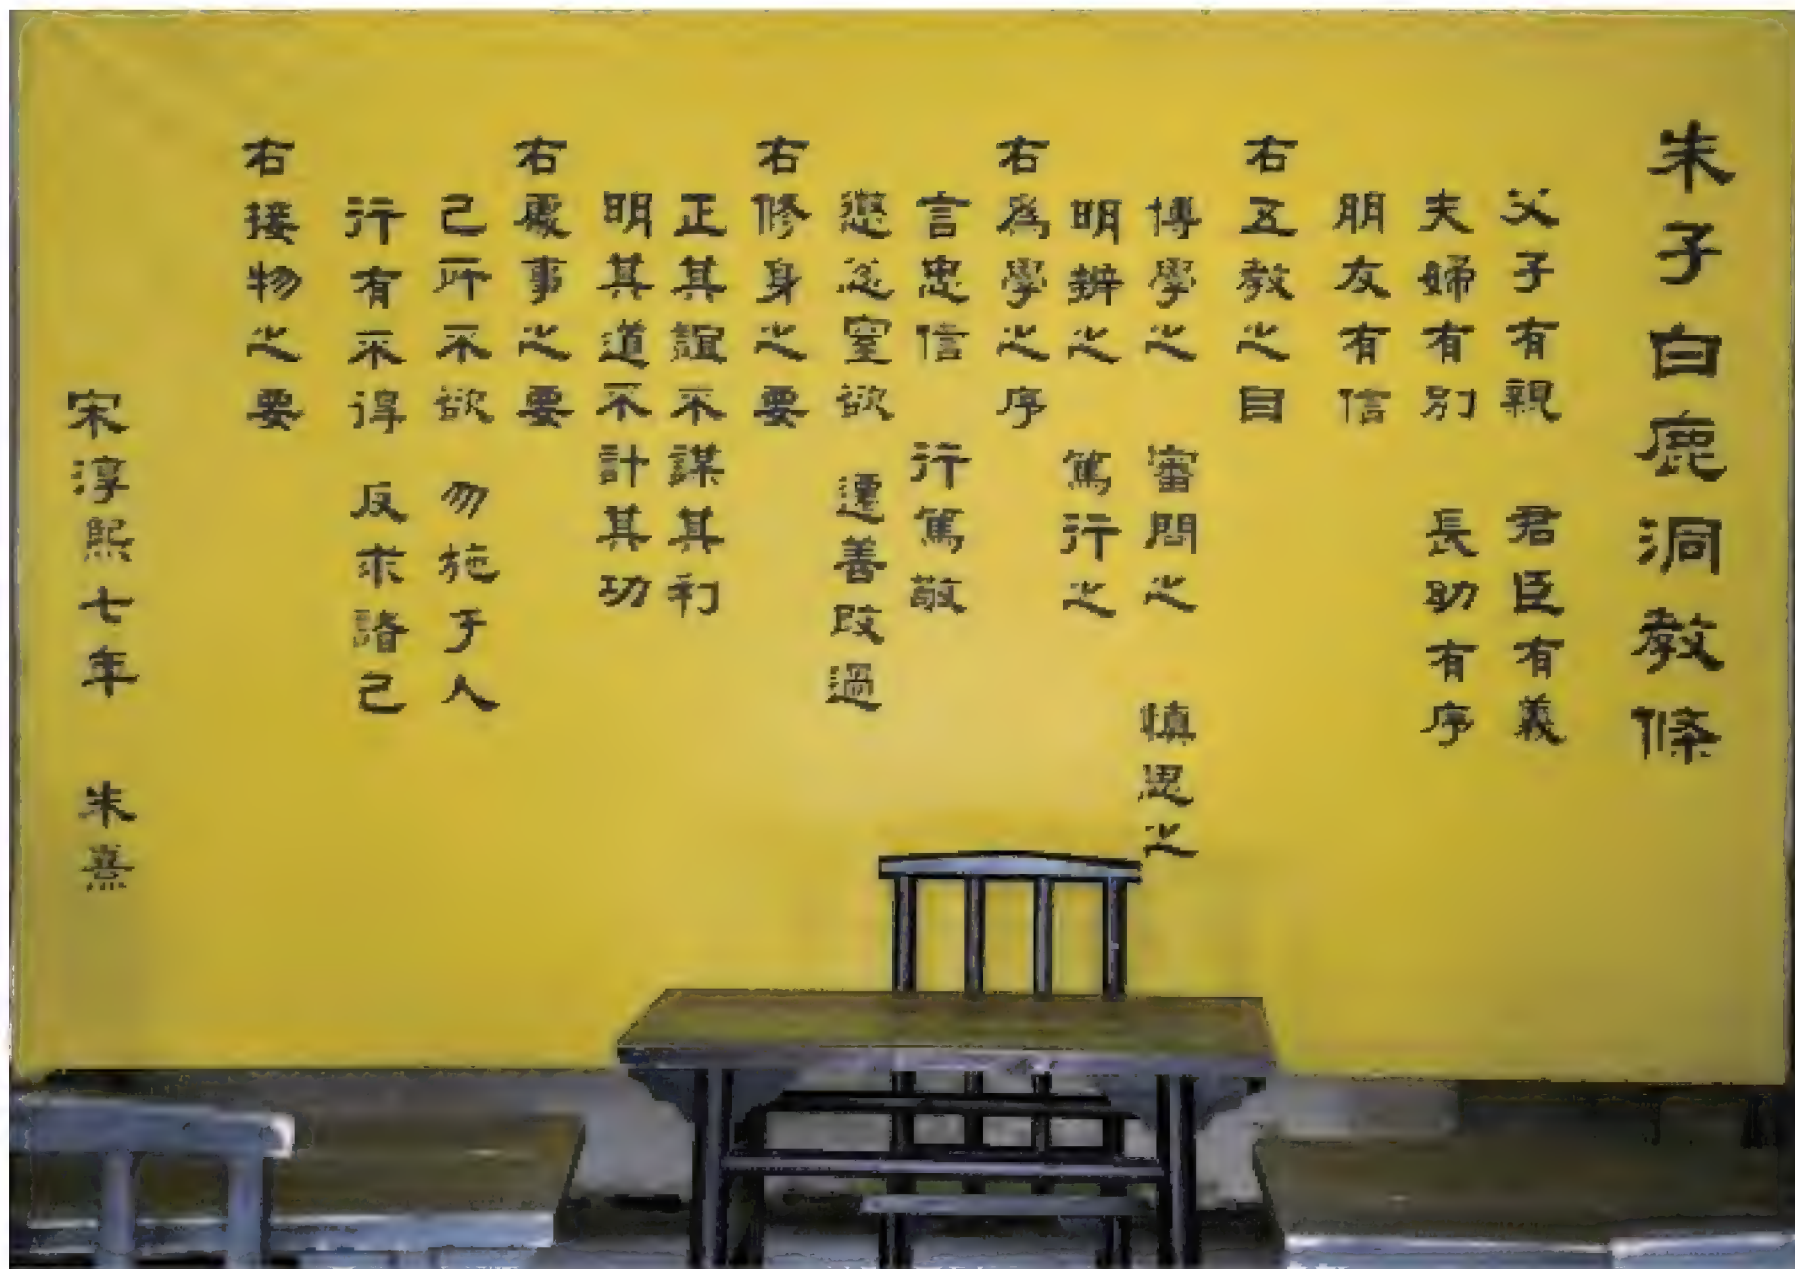 朱子白鹿洞教條
父子有親 君臣有義
夫婦有別 長助有序
朋友有信
右五教之目
博學之 審問之 慎思之
明辨之 篤行之
右為學之序
言忠信 行篤敬
懲忿窒欲 遷善改過
右修身之要
正其誼不謀其利
明其道不計其功
右處事之要
己所不欲 勿施于人
行有不得 反求諸己
右接物之要
宋淳熙七年 朱熹